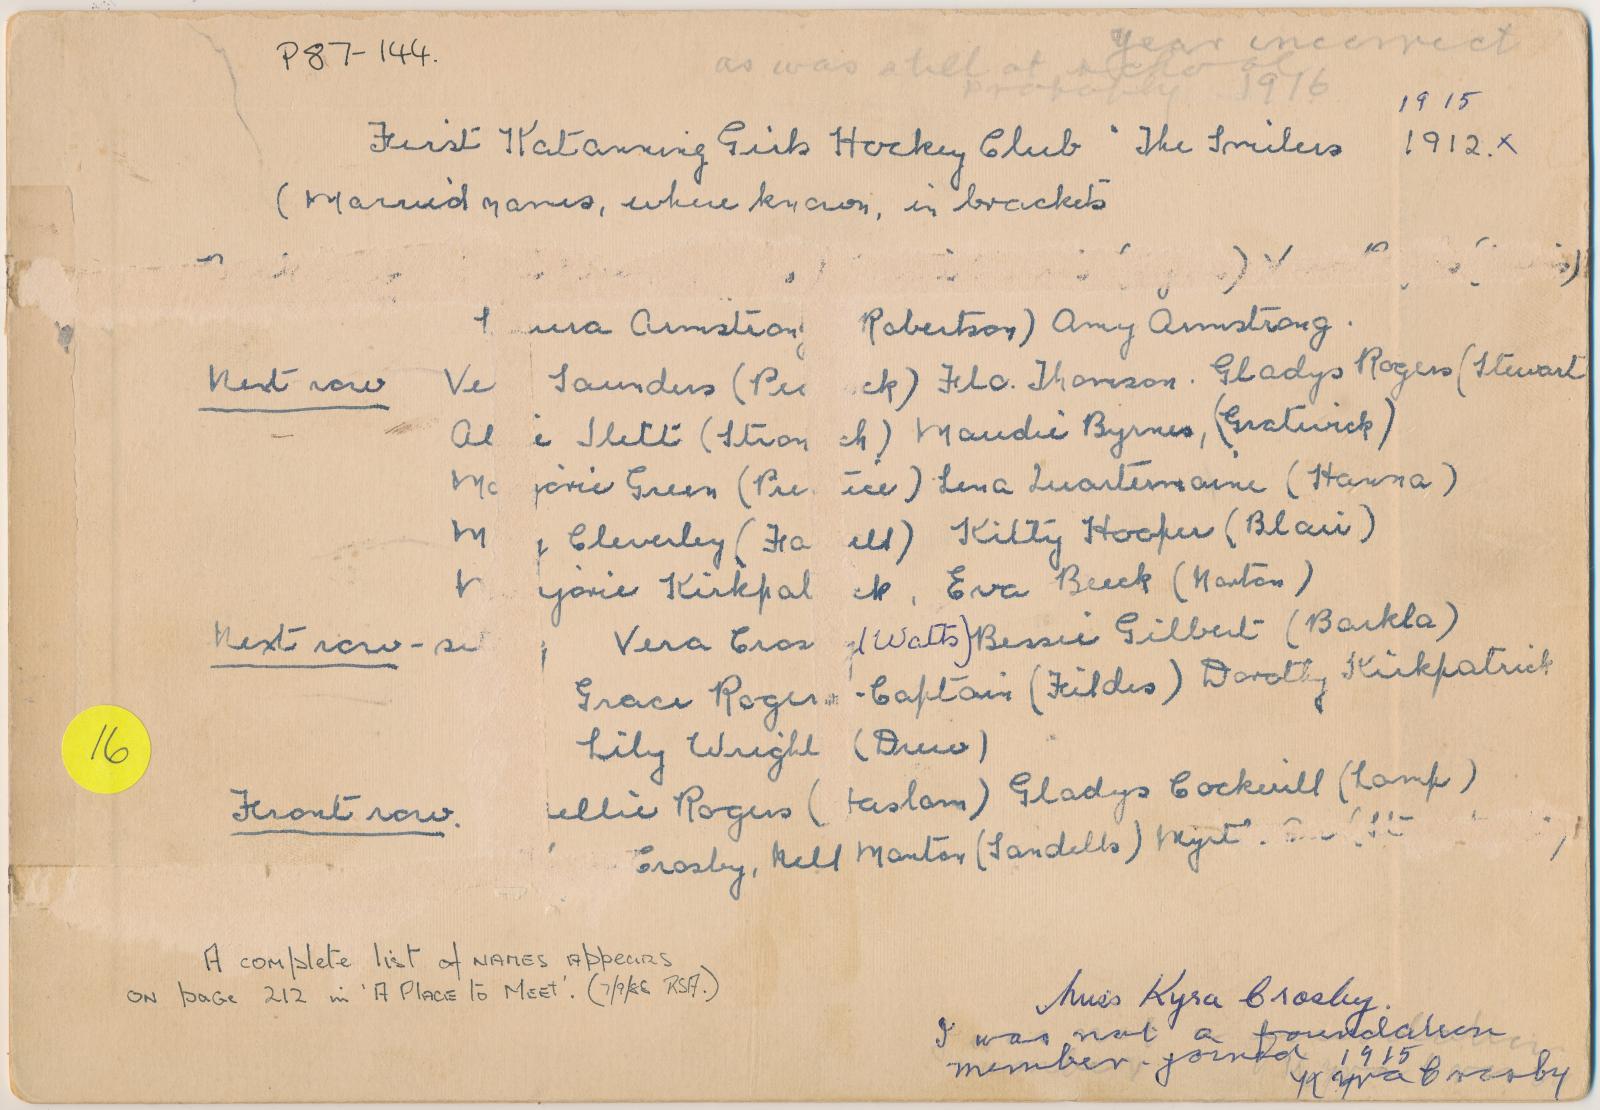 P87-144.
year incorrect
as was still at school
probably 1916
1915
First Katanning Girls Hockey Club "The Smilers 1912.x
(Married names, where known, in brackets
ura Armstrong Robertson) Amy Armstrong.
Next row Ve Saunders (Pe ck) Flo. Thomson. Gladys Rogers (Stewart
Al e Ilett (Stron ch) Maudie Byrnes, (Gratwick)
Ma jorie Green (Pre ice) Lena Quartermaine (Hanna)
M Cleverley (Fa ell) Kitty Hooper (Blair)
jorie Kirkpat ck, Eva Beeck (Norton)
Next row - se Vera Cros (Watts) Bessie Gilbert (Barkla)
Grace Rogers - Captain (Fildes) Dorothy Kirkpatrick
Lily Wright (Drew)
Front row. ellie Rogers ( Haslam) Gladys Cockerill (Lamp)
Crosby, Nell Manton (Sandells) Myrt
16
A complete list of NAMES Appears
ON page 212 in 'A PLACE to MEET'. (7/9/88 RSA.)
Miss Kyra Crosby.
I was not a foundation
member - joined 1915
Kyra Crosby